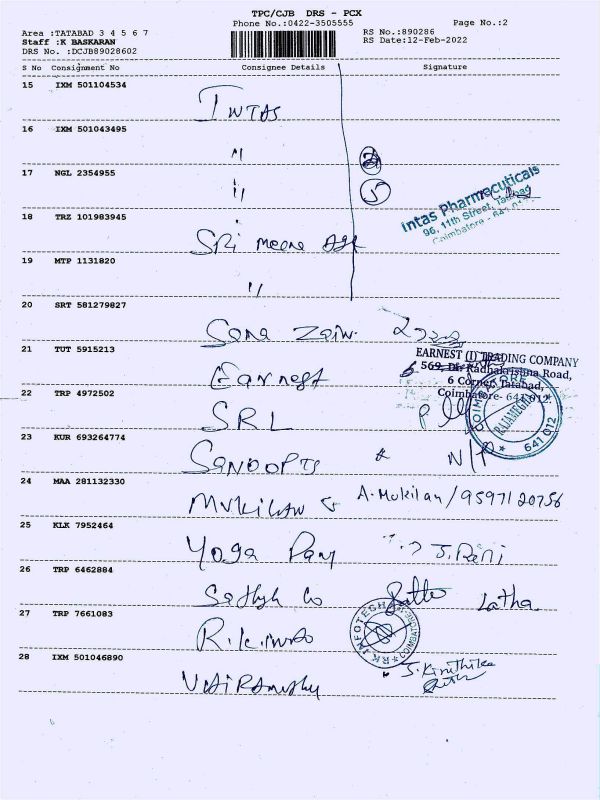 TPC/CJB DRS - PCX
Phone No.:0422-3505555
Page No.:2
Area :TATABAD 3 4 5 6 7
Staff :K BASKARAN
DRS No. :DCJB89028602
RS No.:890286
RS Date:12-Feb-2022
S No Consignment No Consignee Details Signature
15 IXM 501104534
INTAS
16 IXM 501043495
"
2
17 NGL 2354955
"
5
Intas Pharmaceuticals
96, 11th Street, Tatabad
Coimbatore - 641 012
18 TRZ 101983945
SRi meena Age
19 MTP 1131820
"
20 SRT 581279827
Sona
21 TUT 5915213
EARNEST (I) TRADING COMPANY
569, Dr. Radhakrishna Road,
6 Corner, Tatabad,
Coimbatore- 641 012.
Earnest
22 TRP 4972502
SRL
COIMBATORE
RAJAMEGHA
641 012
23 KUR 693264774
SANOOPTS
24 MAA 281132330
MUKILAN G A. Mukilan/9597120756
25 KLK 7952464
Yoga Ram J. Rani
26 TRP 6462884
Sathyk Co Latha
27 TRP 7661083
RK INFOTECH
COIMBATORE
28 IXM 501046890
J. Kiruthika